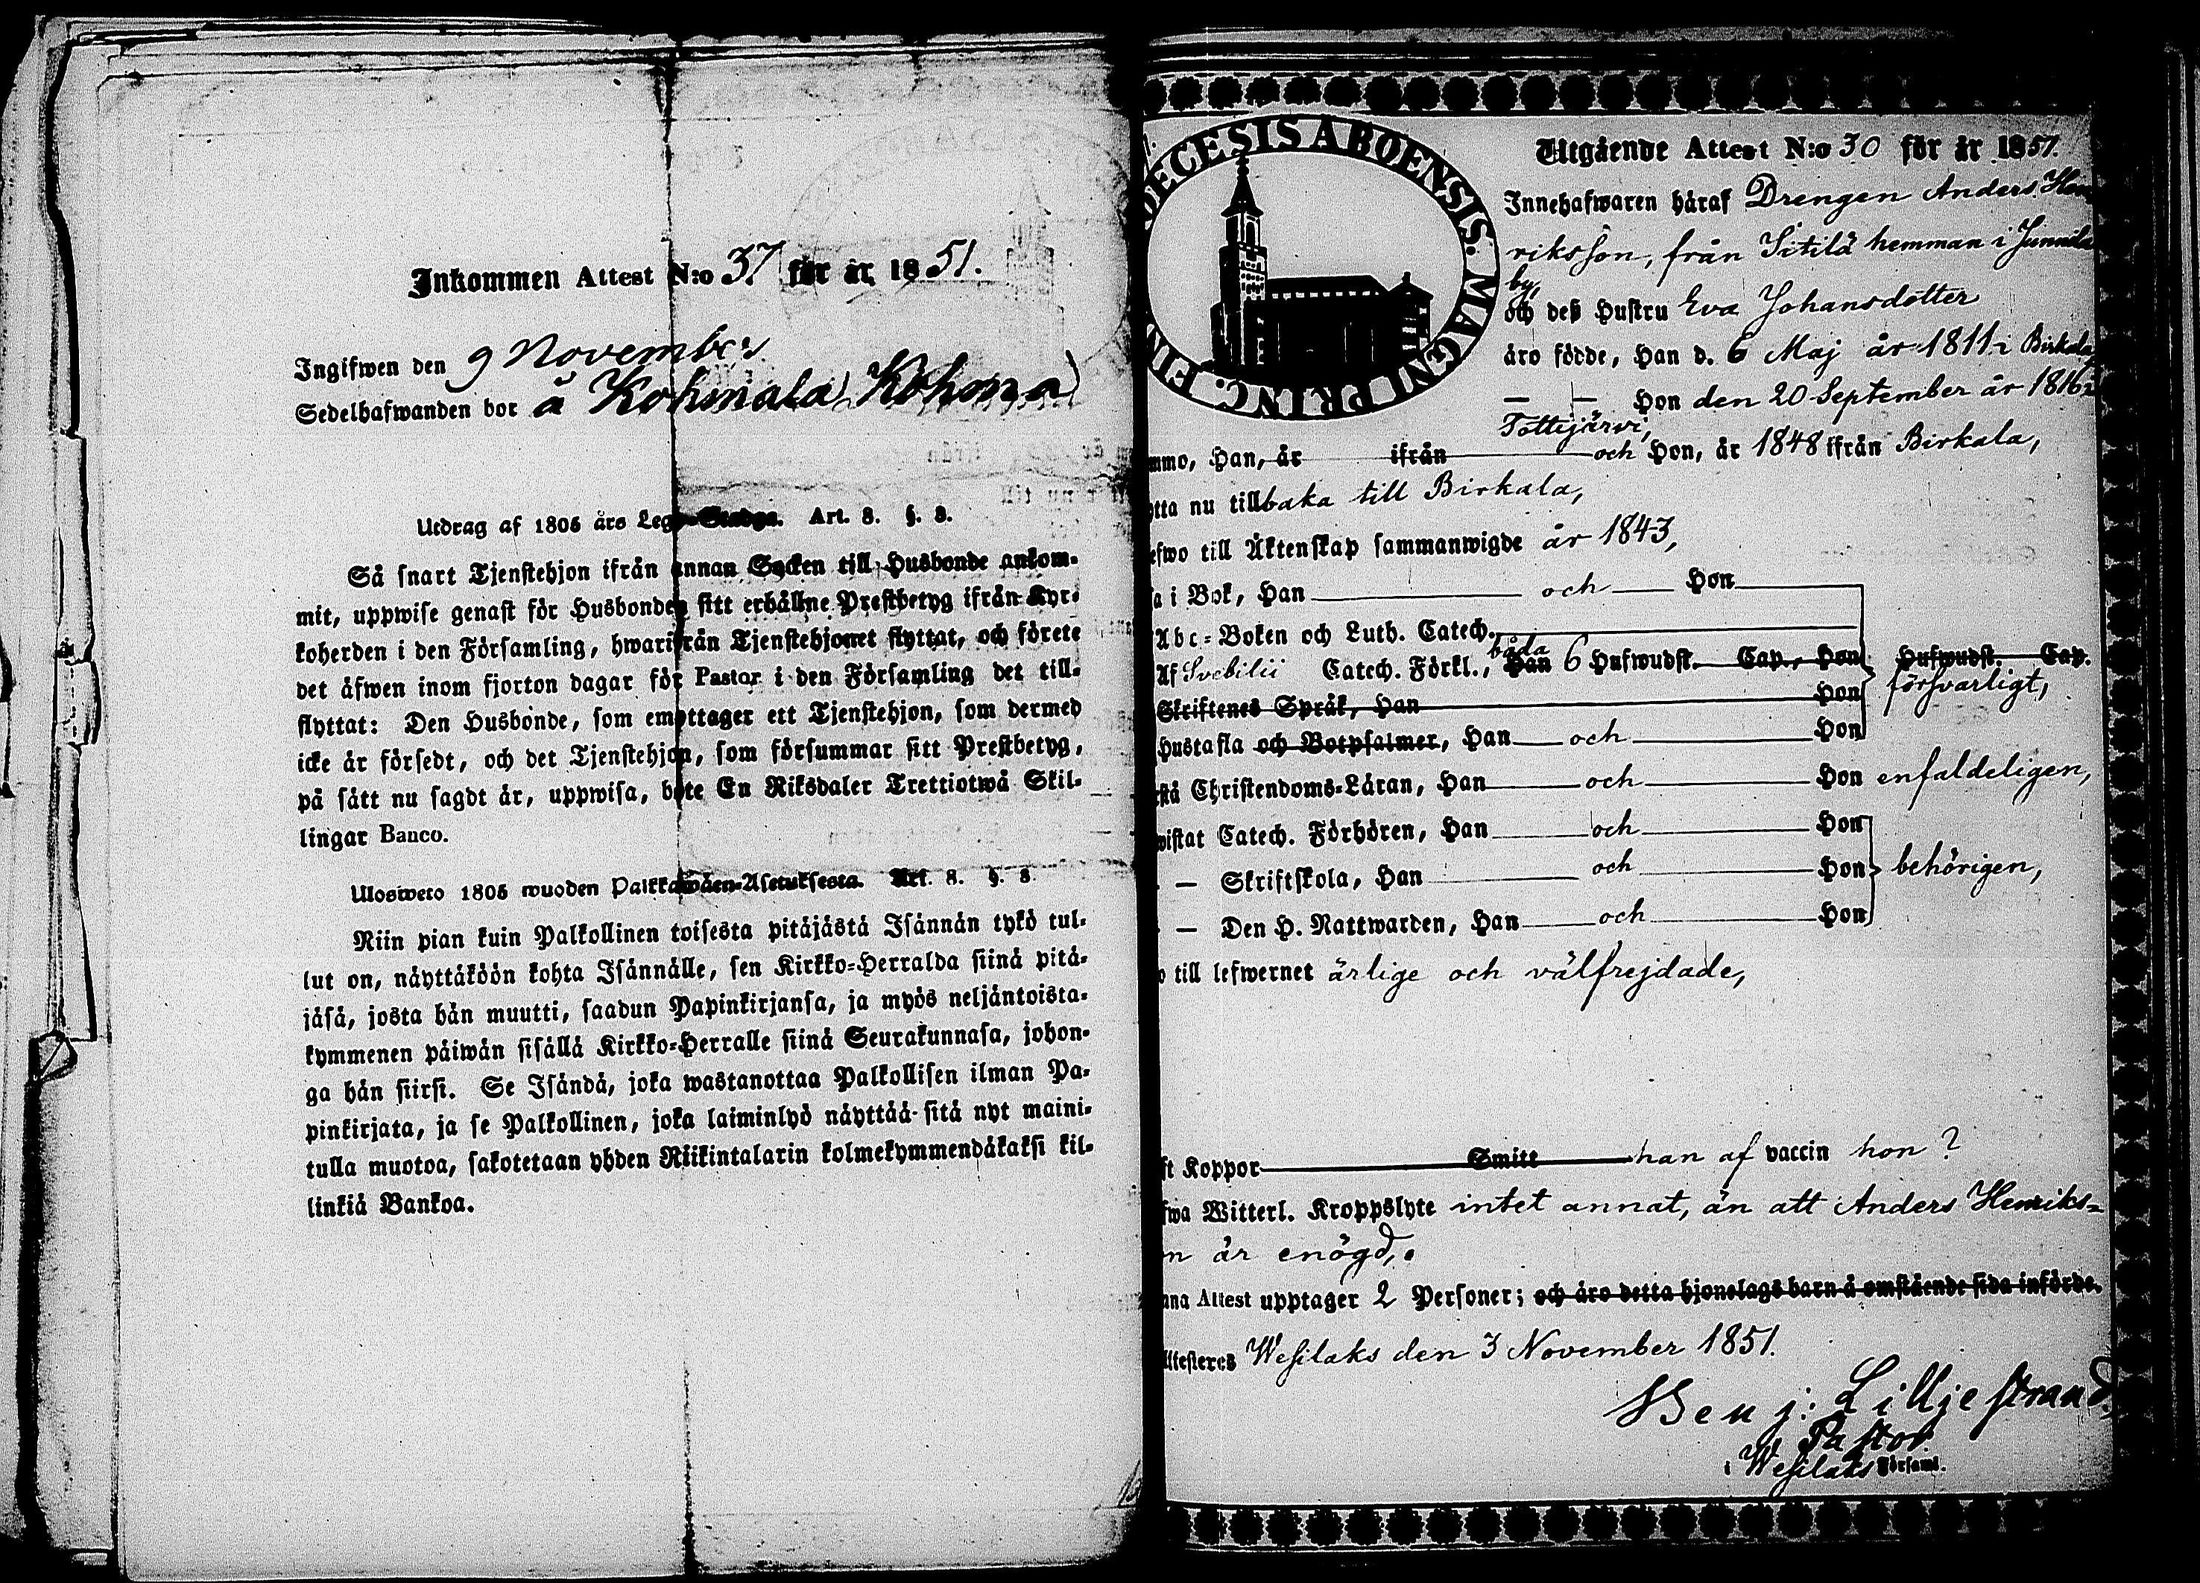 Inkommen Attest N:o 37 för år 1851.
Ingifwen den 9 November
Sedelhafwanden bor å Kohmala Kohma
Utdrag af 1805 års Lego-Stadga. Art. 8. §. 8.
Så snart Tjenstehjon ifrån annan Socken till Husbonde ankom-
mit, uppwise genast för Husbonden sitt erhållne Prestbetyg ifrån Kyr-
koherden i den Församling, hwarifrån Tjenstehjonet flyttat, och förete
det äfwen inom fjorton dagar för Pastor i den Församling det till-
flyttat: Den Husbonde, som emottager ett Tjenstehjon, som dermed
icke är försedt, och det Tjenstehjon, som försummar sitt Prestbetyg,
på sätt nu sagdt är, uppwisa, böte En Riksdaler Trettiotwå Skil-
lingar Banco.
Ulosweto 1805 wuoden Palkkawäen-Asetuksesta. Art. 8. §. 8.
Niin pian kuin Palkollinen toisesta pitäjästä Isännän tykö tul-
lut on, näyttäköön kohta Isännälle, sen Kirkko-Herralda siinä pitä-
jäsä, josta hän muutti, saadun Papinkirjansa, ja myös neljäntoista-
kymmenen päiwän sisällä Kirkko-Herralle siinä Seurakunnasa, johon-
ga hän siirsi. Se Isändä, joka wastanottaa Palkollisen ilman Pa-
pinkirjata, ja se Palkollinen, joka laiminlyö näyttää sitä nyt maini-
tulla muotoa, sakotetaan yhden Riikintalarin kolmekymmendäkaksi kil-
linkiä Bankoa.
DECESIS ABOENSIS. MAGNI PRINC. FIN
Utgående Attest N:o 30 för år 1851.
Innehafwaren häraf Drengen Anders Hen
riksson, från Sitilä hemman i Junnila
by,
och deß Hustru Eva Johansdotter
äro födde, Han d. 6 Maj år 1811 i Birkala,
— — Hon den 20 September år 1816 i
Tottijärvi,
mmo, Han, år ifrån och Hon, år 1848 ifrån Birkala,
ytta nu tillbaka till Birkala,
efwo till Äktenskap sammanwigde år 1843,
a i Bok, Han och Hon
Abc-Boken och Luth. Catech.
båda
Af Svebilii Catech. Förkl., Han 6 Hufwudst. Cap., Hon Hufwudst. Cap.
Skriftenes Språk, Han Hon försvarligt,
Hustafla och Botpsalmer, Han och Hon
stå Christendoms-Läran, Han och Hon enfaldeligen,
wistat Catech. Förhören, Han och Hon
— Skriftskola, Han och Hon behörigen,
— Den H. Nattwarden, Han och Hon
o till lefwernet ärlige och välfrejdade,
ft Koppor Smitt han af vaccin hon ?
fwa Witterl. Kroppslyte intet annat, än att Anders Henriks-
n är enögd,.
nna Attest upptager 2 Personer; och äro detta hjonelags barn å omstående sida införde.
ttesteres Wesilaks den 3 November 1851.
Benj: Lilljestrand
Pastor
i Wesilaks Församl.